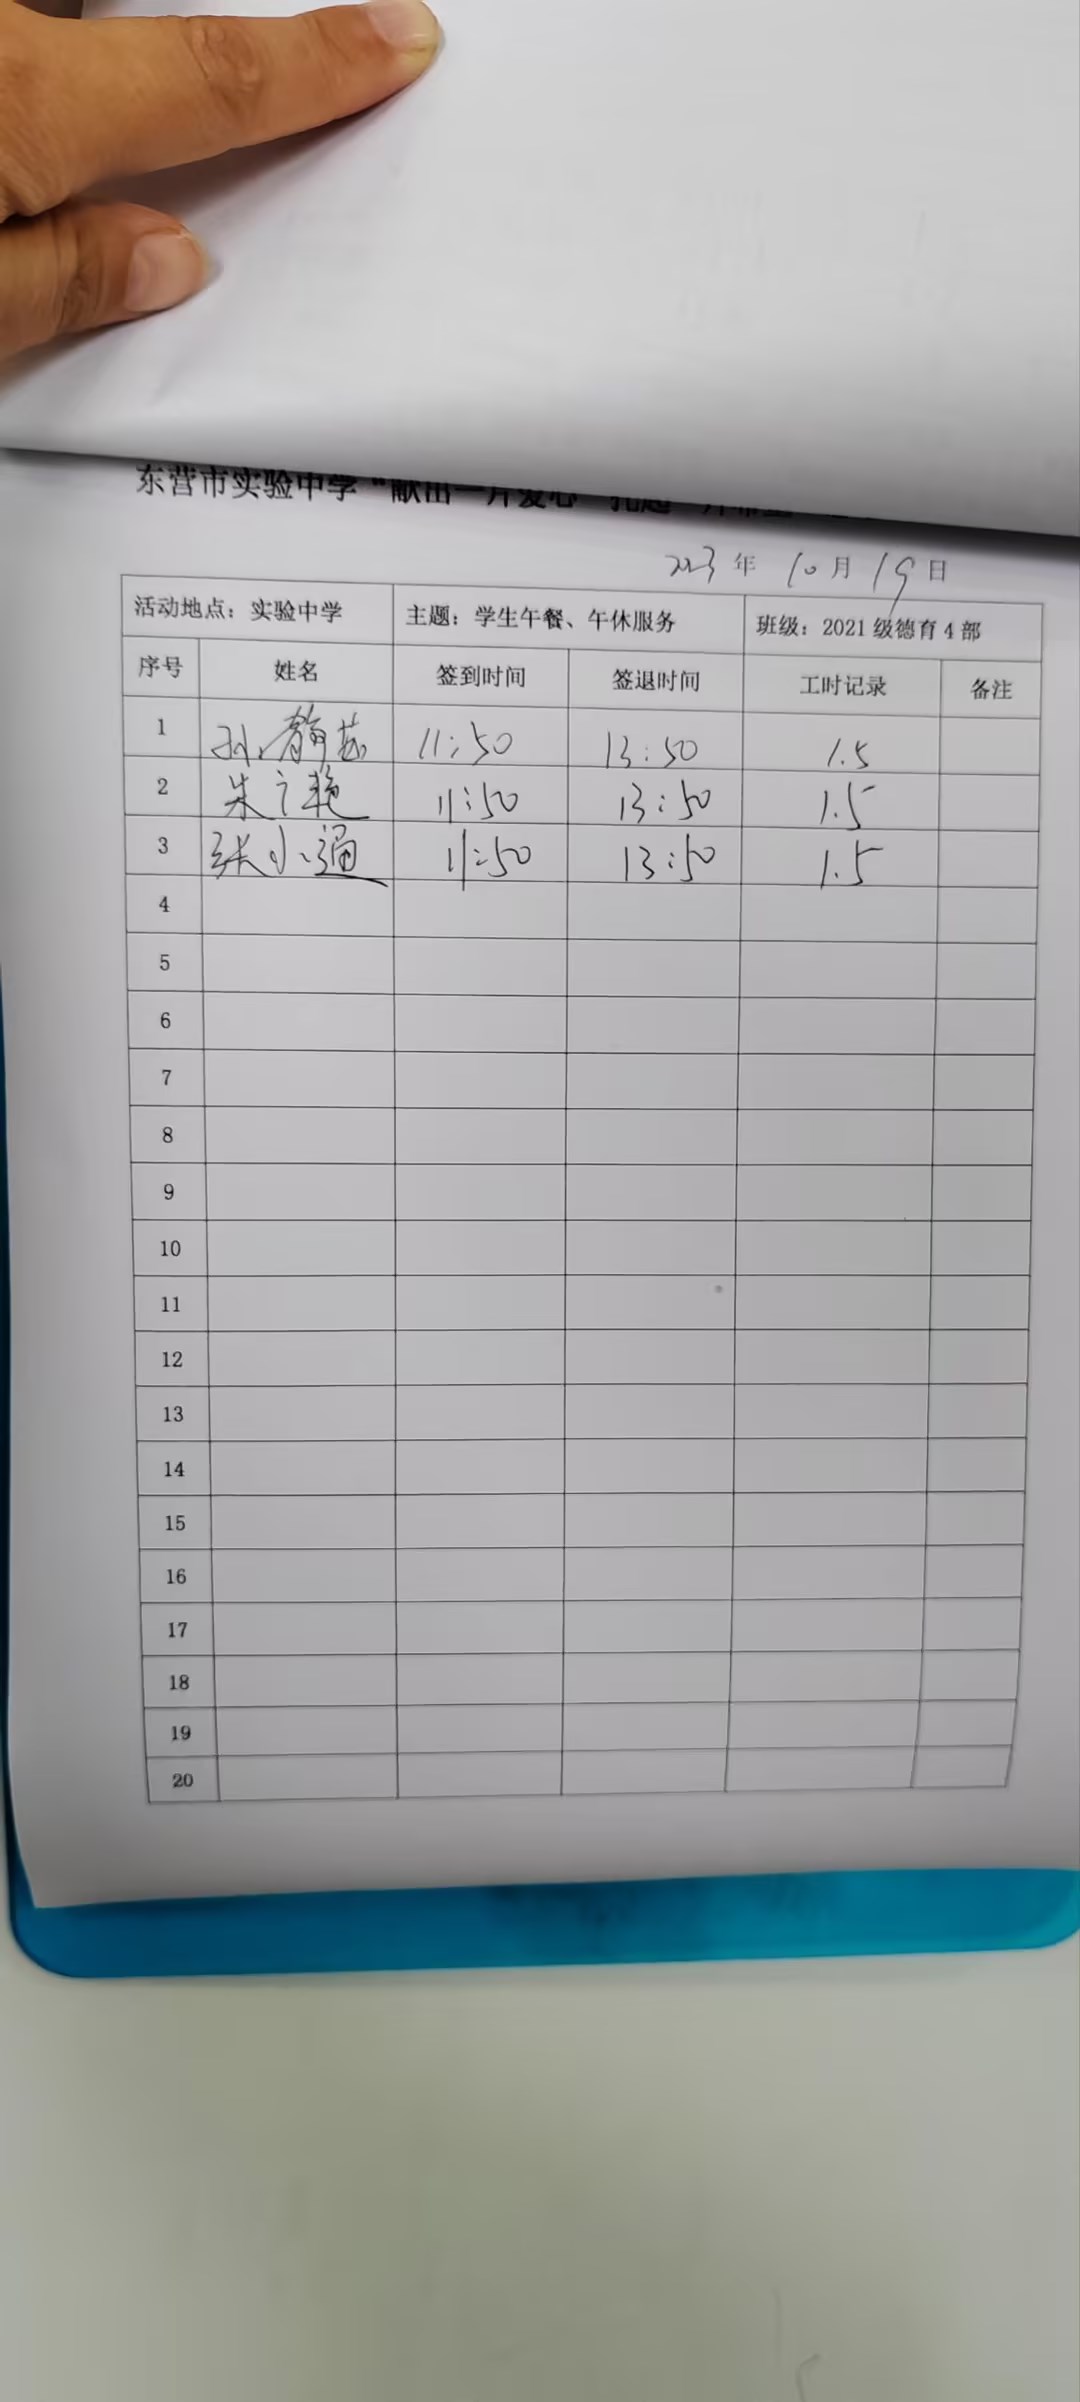 东营市实验中学“献出一片爱心
2023年10月19日
活动地点：实验中学 主题：学生午餐、午休服务 班级：2021级德育4部
序号 姓名 签到时间 签退时间 工时记录 备注
1 11:50 13:50 1.5
2 朱 艳 11:50 13:50 1.5
3 张小通 11:50 13:50 1.5
4
5
6
7
8
9
10
11
12
13
14
15
16
17
18
19
20